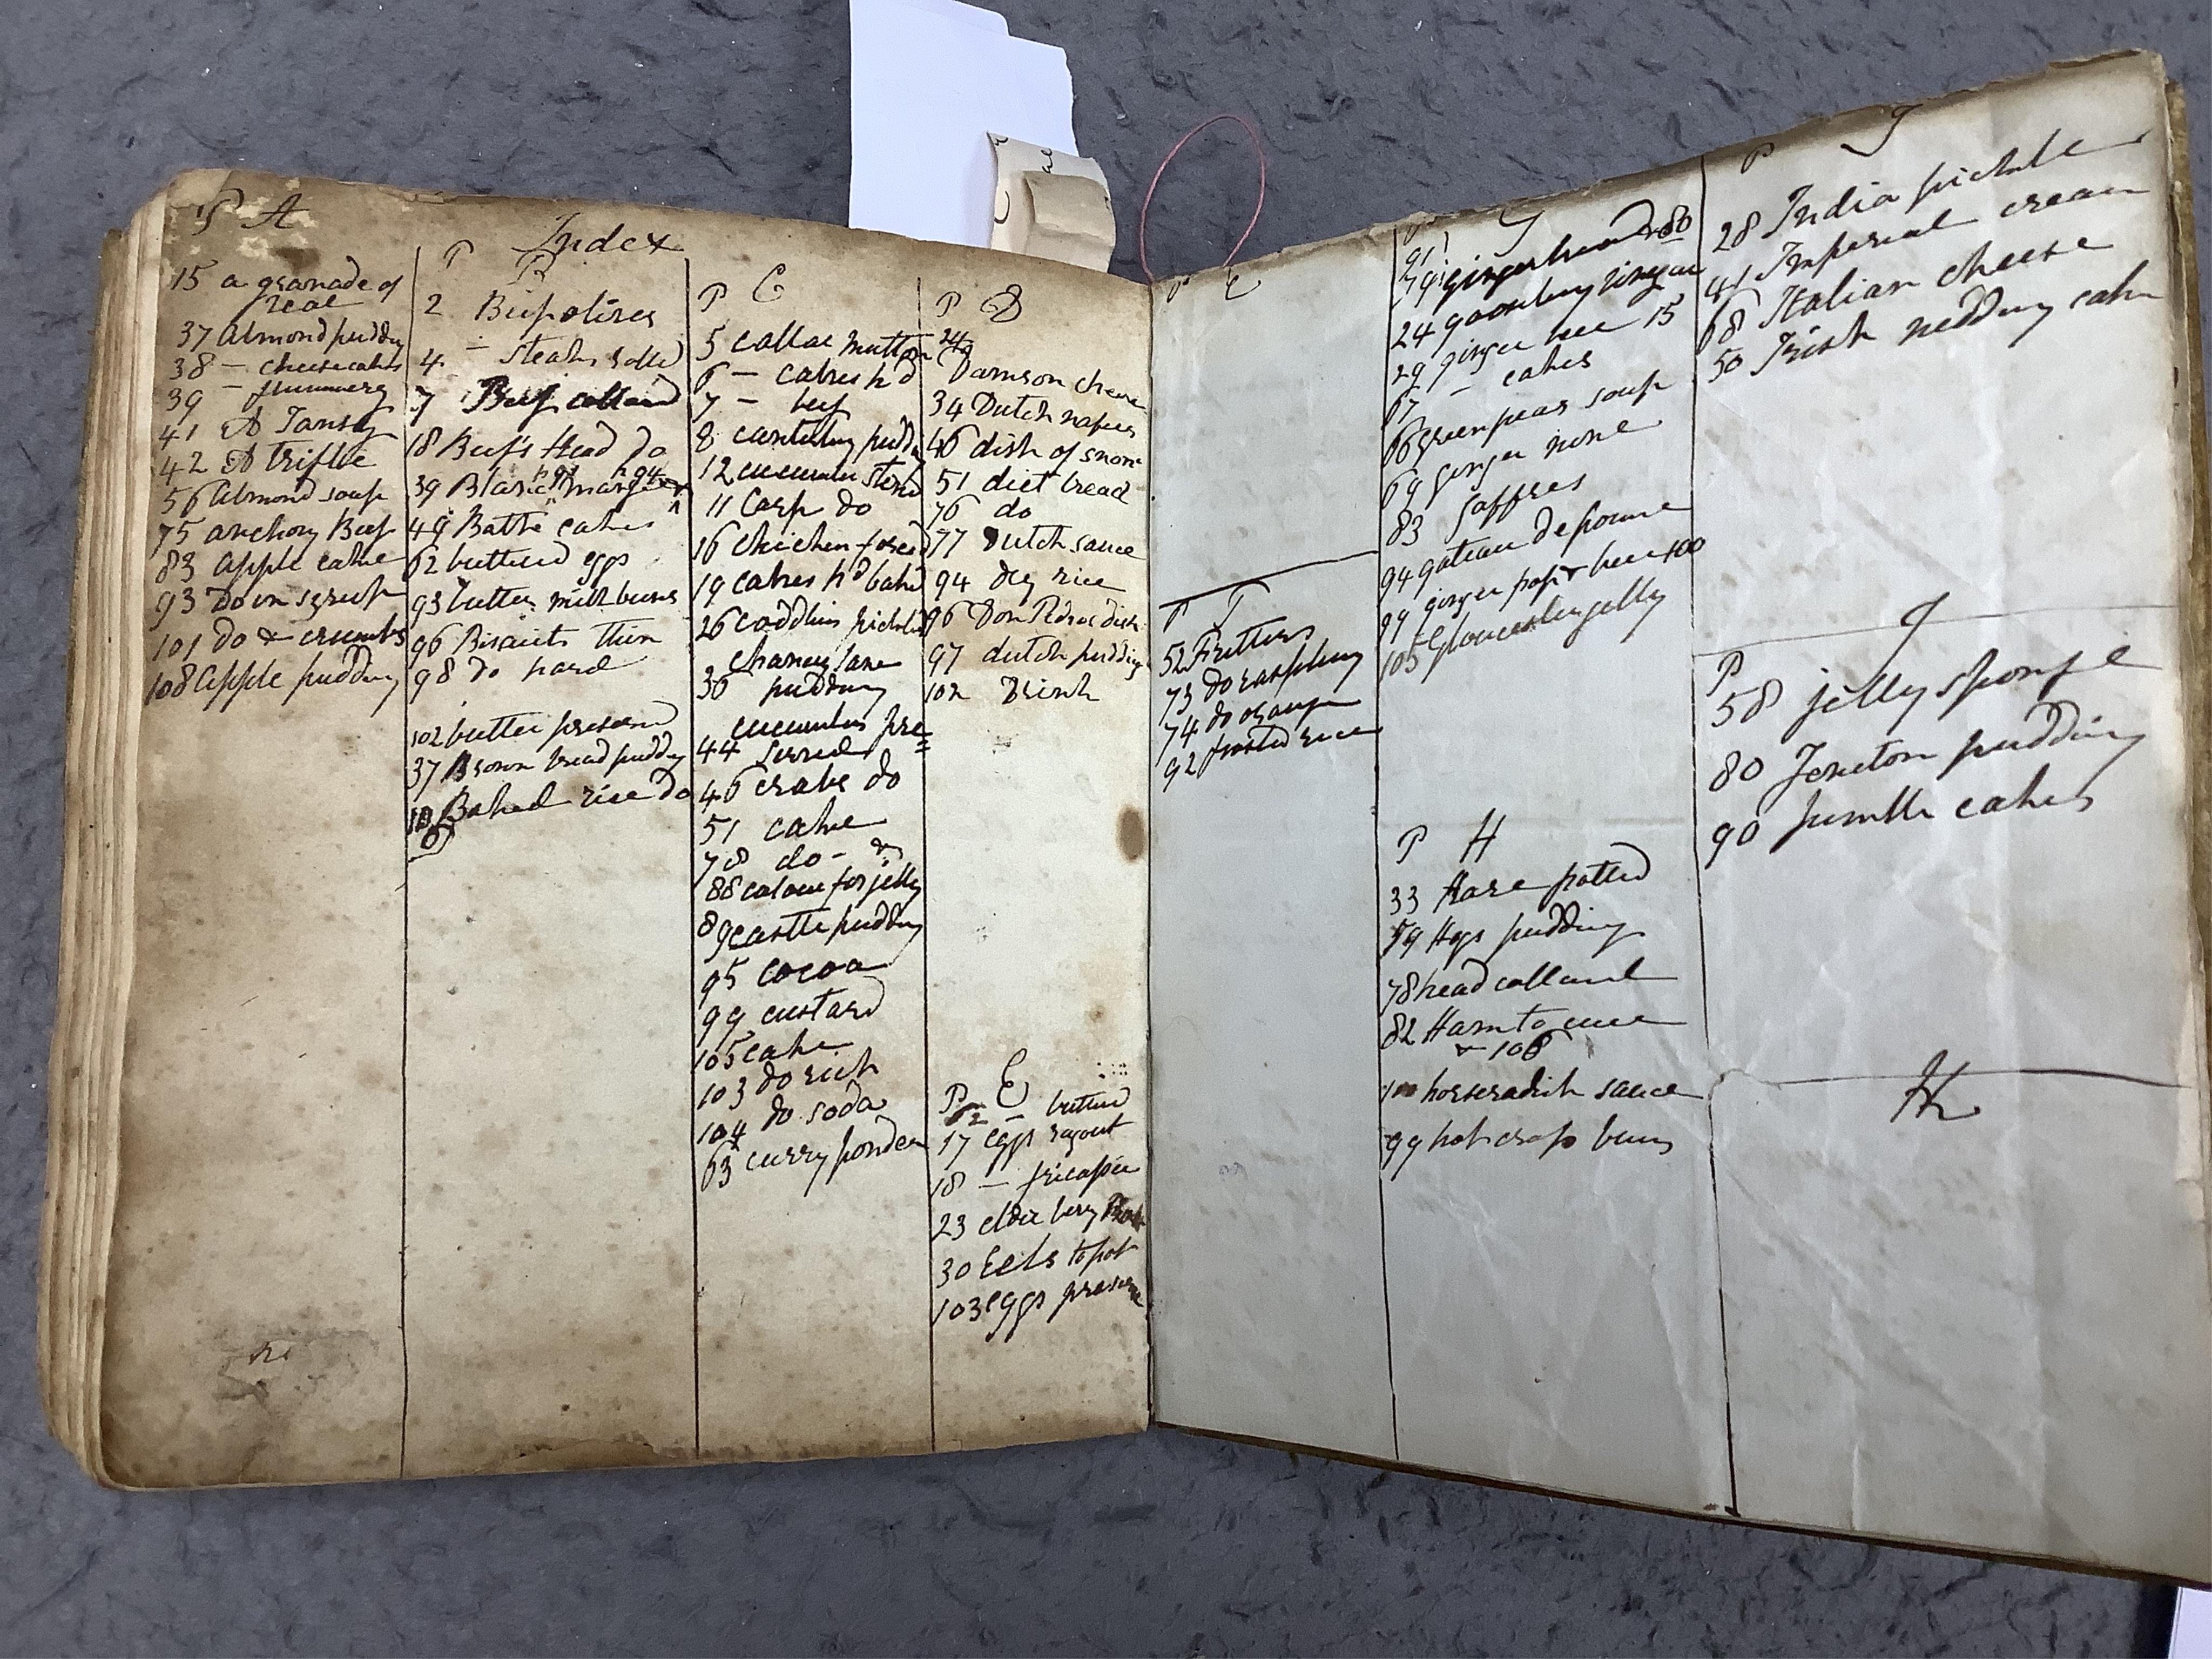 P A
15 a granade of
veal
37 Almond pudding
38 – cheesecakes
39 – flummery
41 A Tansey
42 A trifle
56 Almond soup
75 anchovy Beef
83 apple cake
93 Do in syrup
101 do & crumbs
108 apple pudding
Index
P B
2 Beef olives
4 – steaks rolld
7 Beef collard
18 Beef's Head do
39 Blanc mange p 91 p 94
49 Bath cakes
62 butterd eggs
93 butter milk buns
96 Biscuits thin
98 do hard
102 butter preserved
37 Brown bread pudding
Baked rice do
P C
5 collar mutton
6 – calves h'd
7 – beef
8 canterbury pudd
12 cucumber stewd
11 Carp do
16 chicken forced
19 calves h'd bak'd
26 coddlins pickled
chancey lane
36 pudding
cucumbers pre=
44 served
46 crabs do
51 cake
78 do –
88 colour for jelly
89 castle pudding
95 cocoa
99 custard
105 cake
103 do rich
104 do soda
63 curry powder
P D
24
Damson cheese
34 Dutch wafers
46 dish of snow
51 diet bread
76 do
77 Dutch sauce
94 dry rice
96 Don Pedros dish
97 dutch pudding
102 Drink
P E
62 – butterd
17 eggs ragout
18 – fricassee
23 elder berry Rob
30 Eels to pot
103 eggs preserve
P E
P F
52 Fritters
73 do raspberry
74 do orange
92 frosted rice
P G
91
79 gingerbread 80
24 gooseberry vinegar
29 ginger beer 15
67 – cakes
66 green peas soup
69 ginger wine
83 Gaffres
94 gateau de pomme
99 ginger pop & beer 100
105 Gloucester jelly
P H
33 Hare potted
59 Hogs pudding
78 head collard
82 Ham to cure
& 106
100 horseradish sauce
99 hot cross buns
P I
28 India pickle
41 Imperial cream
68 Italian cheese
50 Irish wedding cake
J
P
58 jelly sponge
80 Jeneton pudding
90 Jumble cakes
K